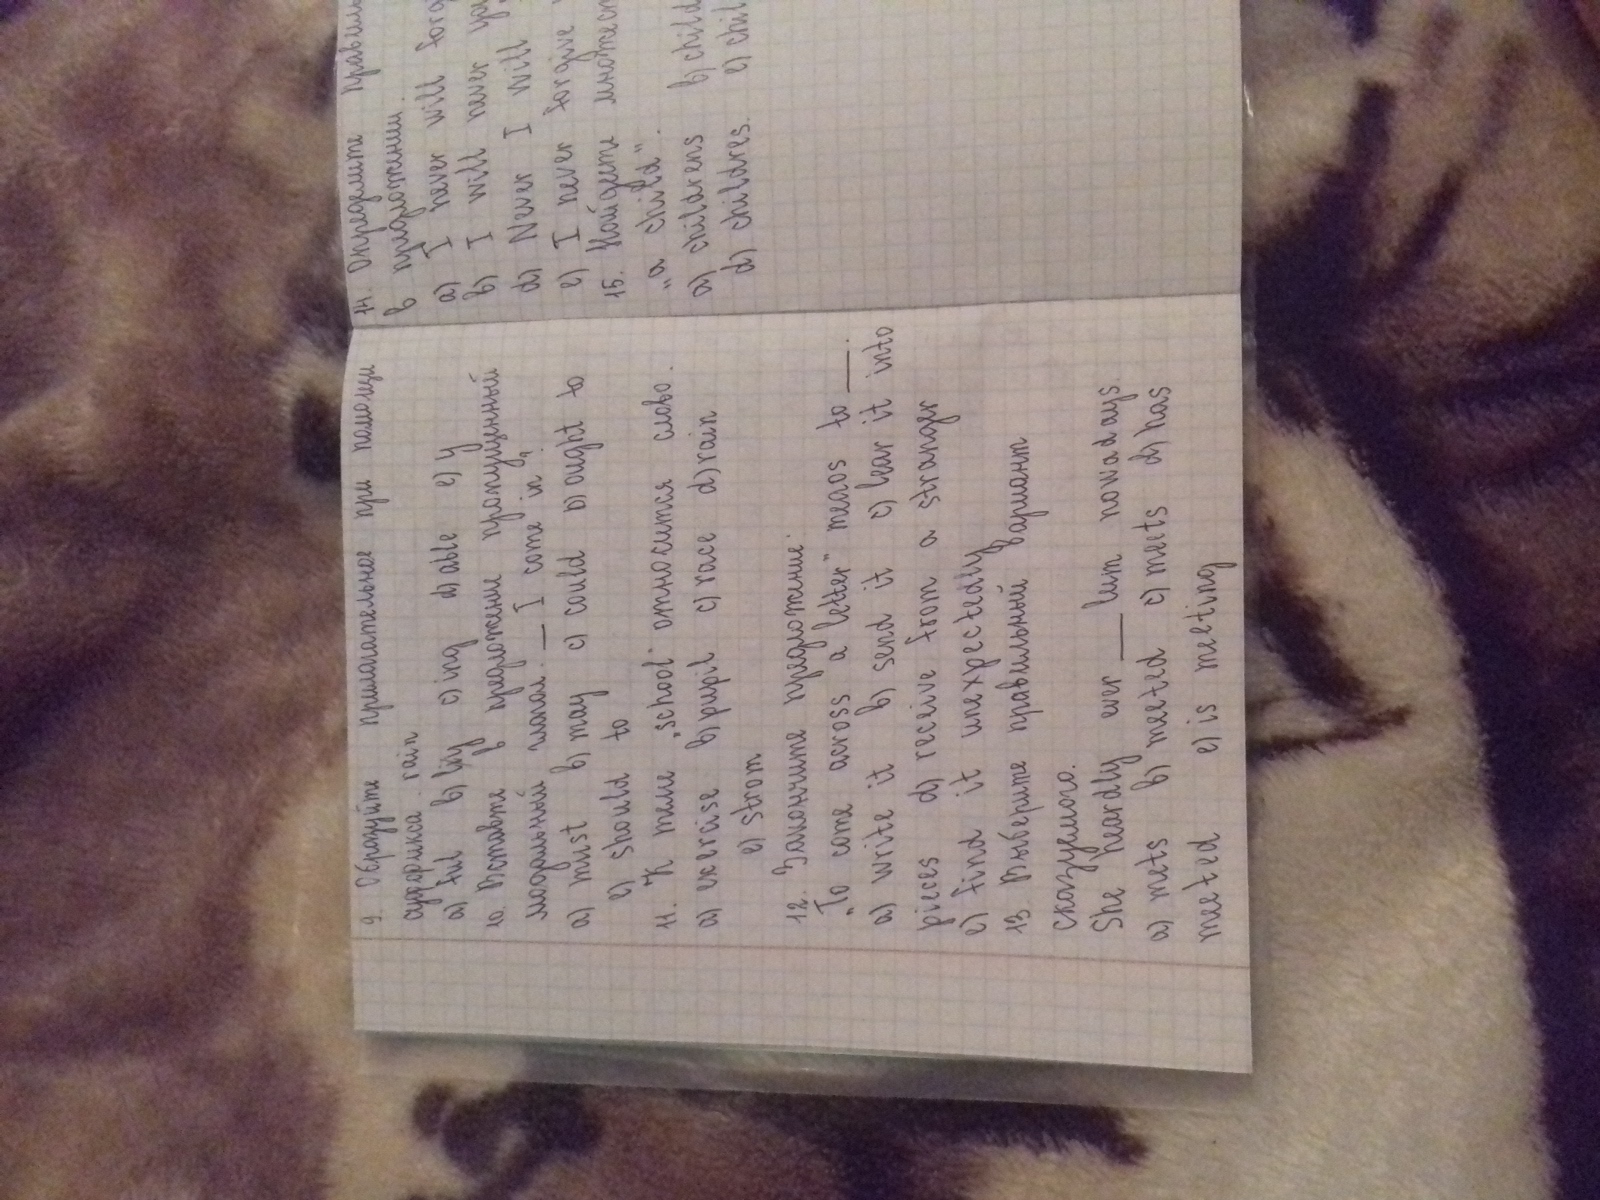 9. Образуйте прилагательное при помощи
суффикса. rain
a) ful b) ly c) ing d) able e) y
10. Вставте в предложение пропущенный
модальный глагол. — I come in?"
a) must b) may c) could d) ought to
e) should to
11. К теме „school" относится слово.
a) exercise b) pupil c) race d) rain
e) strom
12. Закончите предложение.
„To come across a letter" means to —.
a) write it b) send it c) tear it into
pieces d) receive from a stranger
e) find it unexpectedly
13. Выберите правильный вариант
сказуемого.
She heardly ever — lum nowadays.
a) mets b) meeted c) meets d) has
meeted e) is meeting
14. Определите
в предложении.
a) I never will
b) I will never
d) Never I will
e) I never forgive
15. Найдете
„a child".
a) childrens b)
d) childres. e)